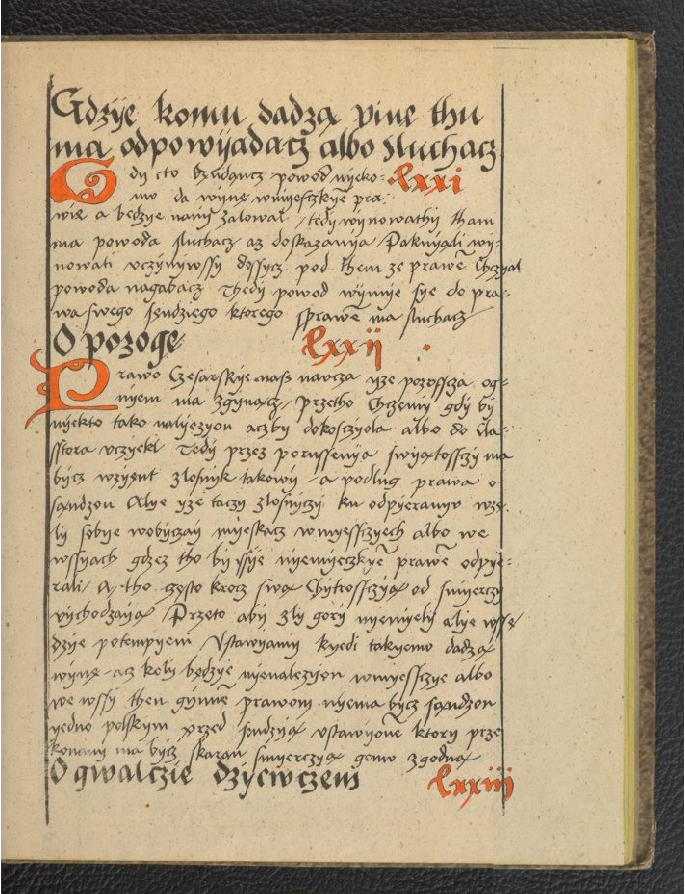 Gdzÿe komu dadzą vine thu
ma odpowÿadacz albo sluchacz
Gdy cto bendancz powod nyeko- lxxi
mu da wyną wmyesczkye pra-
wie a bedzye nany zalowal / tedy wynowathy tham
ma powoda sluchacz az doskazanya / Paknyąli wy-
nowati vczynywssy dossycz pod them ze prawē chczyal
powoda nagabacz Thedy powod wymye sye do pra-
wa swego sendziego ktorego sprawē ma sluchacz
O pozogę lxxij
Prawo Czesarskye nasz naucza ysze pozossza og-
nyem ma zgynącz / przetho chczemy gdy by
nyekto tako nalyezyon aczby dokosczyola albo do cla-
sstora vczyekl Tedy przez porussenya swyątosszy ma
bycz wzyent zlosnik takowy a podlug prawa o
sądzon Alye yze taczy zlosnyczy ku odpyeranyu wzy-
ly sobye wobyczay myeskacz wmyesczyech albo we
wssyach gdzez tho by ssye nyemyeczkyē prawē odpye-
rali / A tho często krocz swą chytrossczyą od smyerczy
vychodzayą / Przeto aby zly gory nyemyely Alye wssę
dzye potempyeni Vstawyamy kyedi takyemu dadzą
wyną acz koly będzye nyenalezyon wmyesczye albo
we wssy then gynnē prawom nyema bycz sądzon
yedno polskym przed sendzyą vstawyonē ktory prze
konany ma bycz skazan smyerczyą gemu zgodną
O gwalczie dzyewczem lxxiij